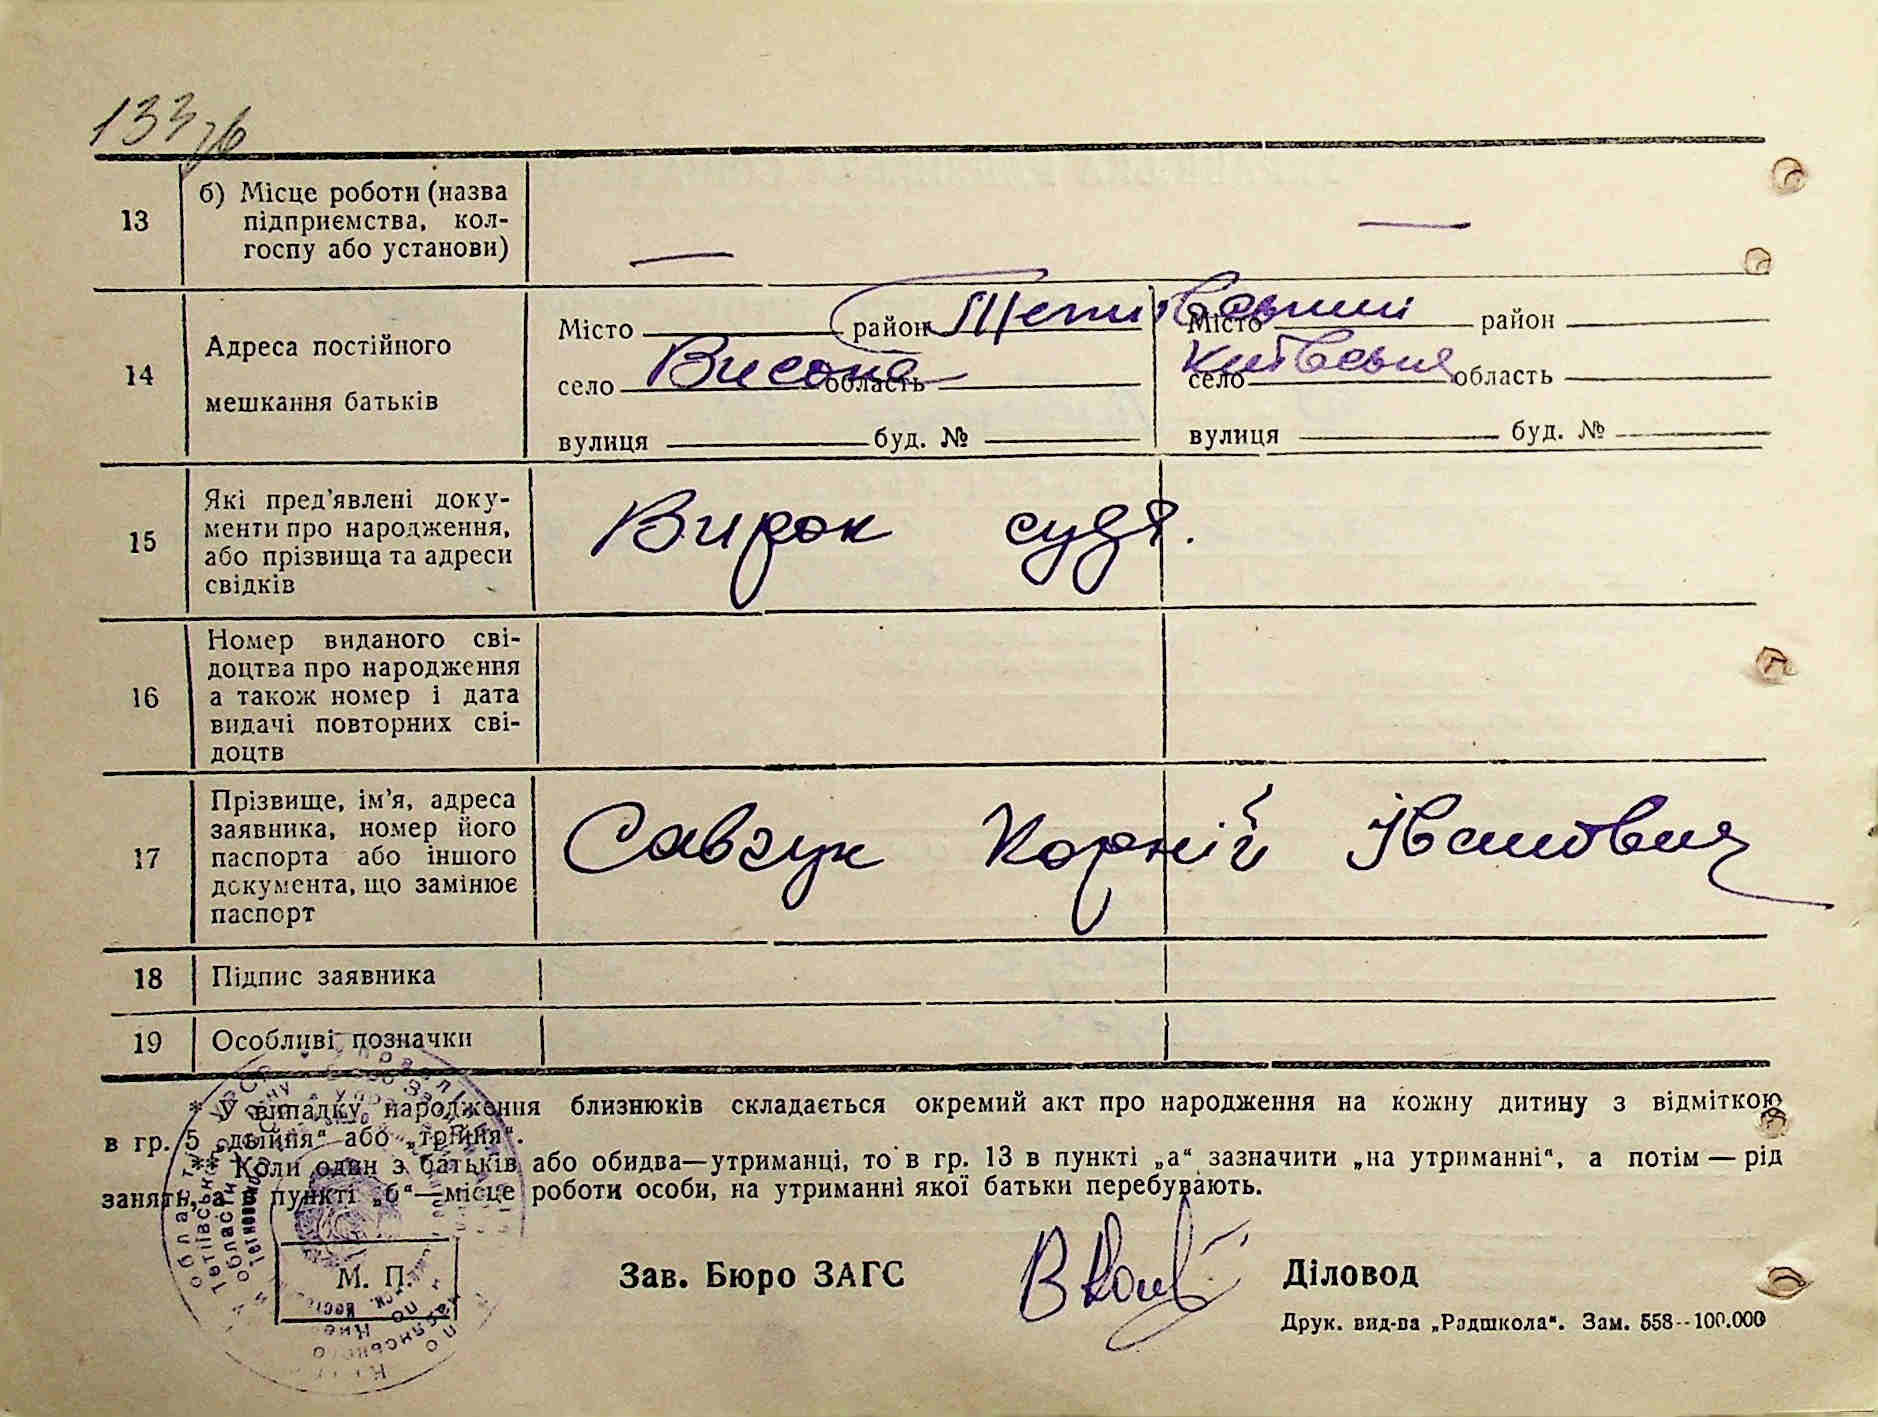 133
13
б) Місце роботи (назва
підприємства, кол-
госпу або установи)
—
—
14
Адреса постійного
мешкання батьків
Місто район Тетіївський
село Висока область
вулиця буд. №
Місто район
село Київська область
вулиця буд. №
15
Які пред'явлені доку-
менти про народження,
або прізвища та адреси
свідків
Вирок суда.
16
Номер виданого сві-
доцтва про народження
а також номер і дата
видачі повторних сві-
доцтв
17
Прізвище, ім'я, адреса
заявника, номер його
паспорта або іншого
документа, що замінює
паспорт
Савчук Корній Іванович
18
Підпис заявника
19
Особливі позначки
* У випадку народження близнюків складається окремий акт про народження на кожну дитину з відміткою
в гр. 5 „двійня“ або „трійня“.
* Коли один з батьків або обидва—утриманці, то в гр. 13 в пункті „а“ зазначити „на утриманні“, а потім — рід
занять, а в пункті „б“—місце роботи особи, на утриманні якої батьки перебувають.
М. П.
Зав. Бюро ЗАГС
Діловод
Друк. вид-ва „Радшкола“. Зам. 558--100.000